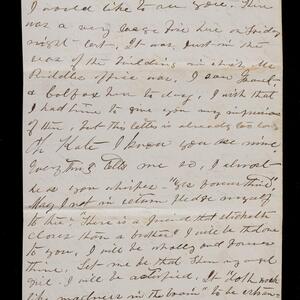 I would like to see you. There
was a very large fire here on Friday
night last. It was just in the
rear of the building in which Mr
Riddles office was. I saw
Colfax here to day. I wish that
I had time to give you my impressions
of them, but this letter is already too long
Oh Kate I know you are mine
Everything tells me so, I almost
hear you whisper "yes forever thine"
May I not in return pledge myself
to thee. "There is a friend that sticketh
closer than a brother" I will be that one
to you. I will be wholly and forever
thine. Let me be that
I will be satisfied. It "doth work
like madness in the brain" to be